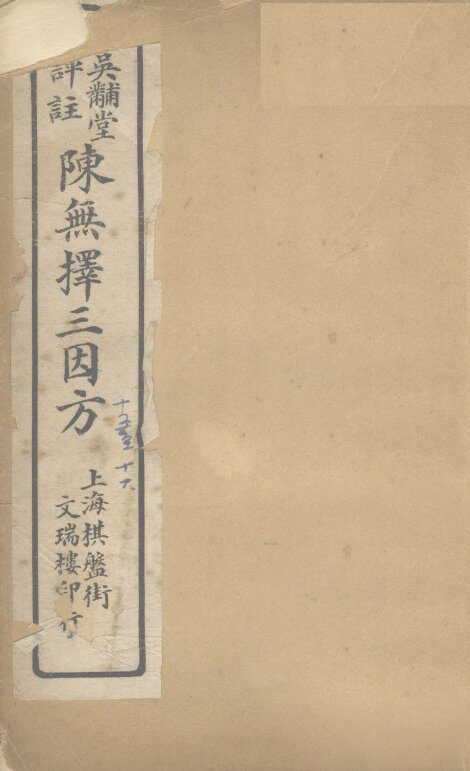 吳黼堂
評註
陳無擇三因方
十五至十六
上海棋盤街
文瑞樓印行